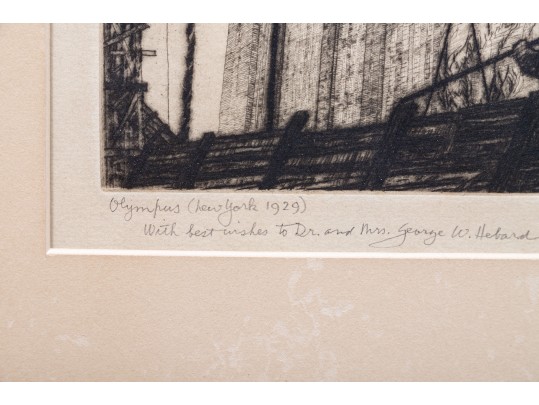 Olympus (New York 1929)
With best wishes to Dr. and Mrs. George W. Hebard